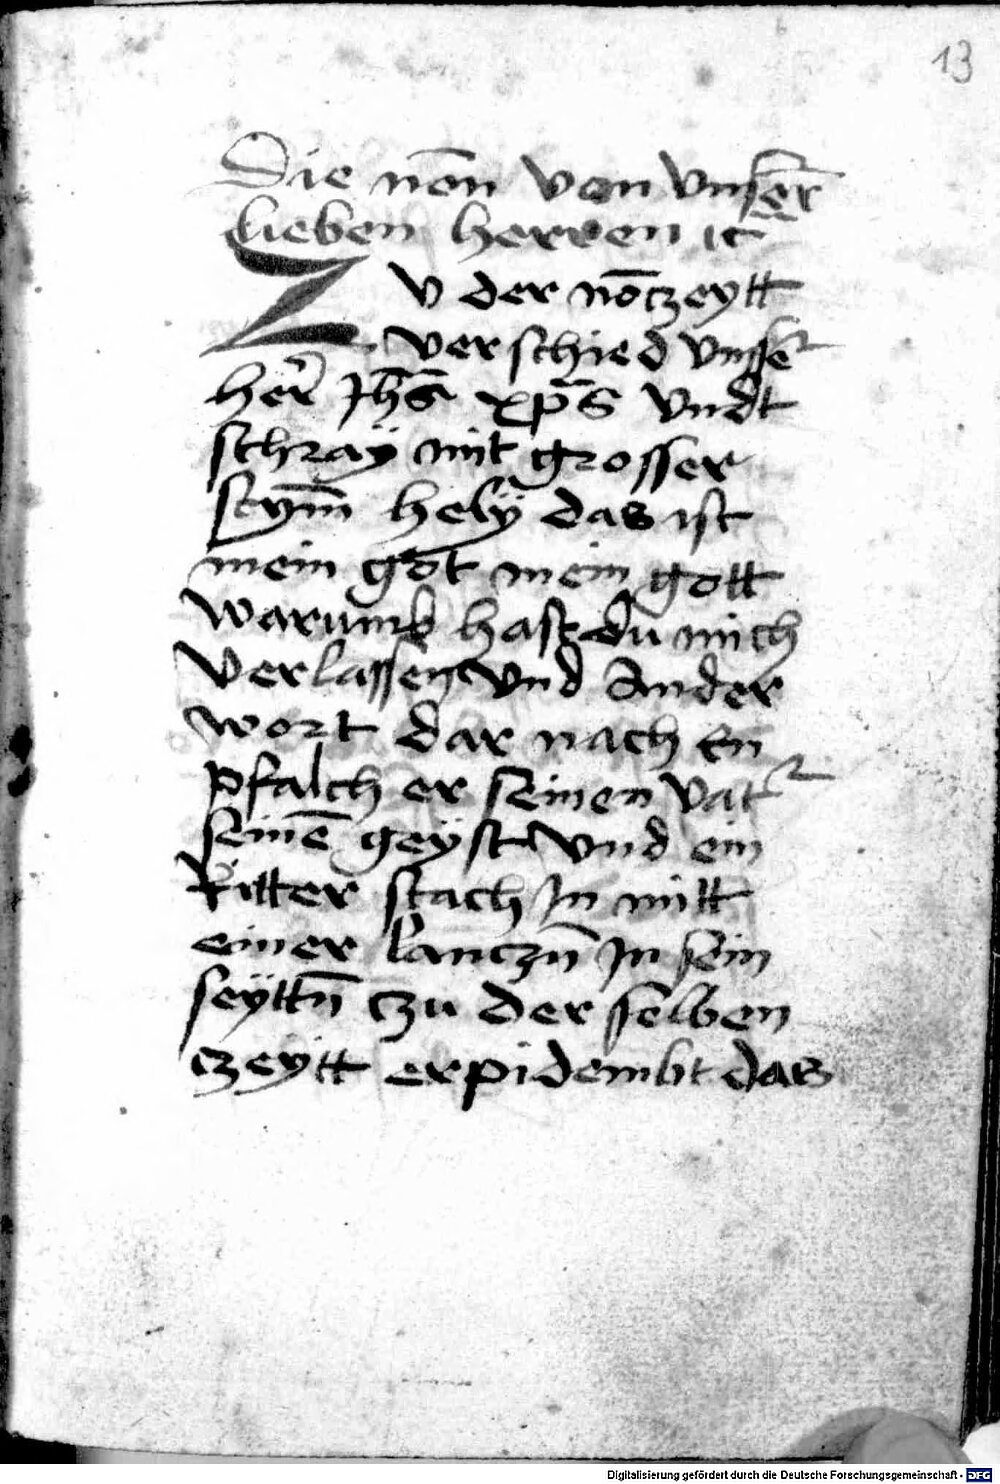 13
Die nōn von vnser̄
lieben herren ic̄
Zv der nōczeytt
verschied vnsse᷑
her̄ Jh̄s xp̄s vndt
schray mit grosser
stym̄ helÿ das ist
mein got mein gott
warumb hast du mich
verlassen vnd ander
wort dar nach en
pfalch er seinen vat᷑
seinē geÿst vnd ein
Ritter stach Jn mitt
einer lanczn̄ Jn sein
seÿttn̄ czu der selben
czeÿtt erpidembt das
Digitalisierung gefördert durch die Deutsche Forschungsgemeinschaft - DFG